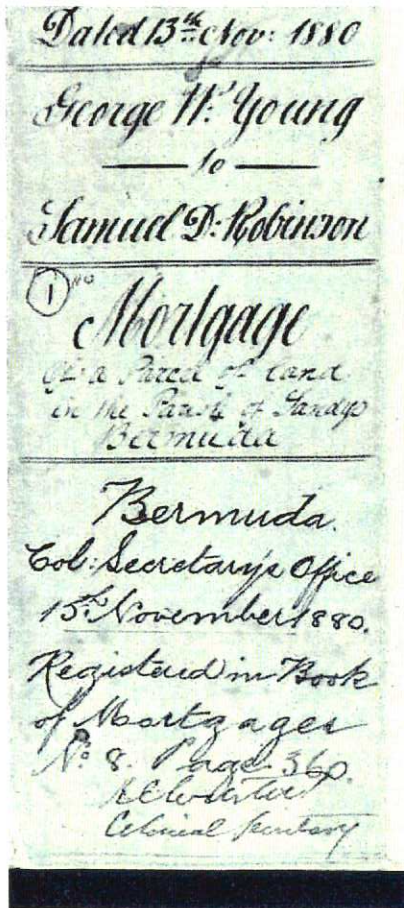 Dated 13th Nov: 1880
George W. Young
to
Samuel D: Robinson
1
Mortgage
Of a Parcel of land
in the Parish of Sandys
Bermuda
Bermuda.
Col: Secretary's Office
15th November 1880.
Registered in Book
of Mortgages
No: 8. Page 360.
Colonial Secretary